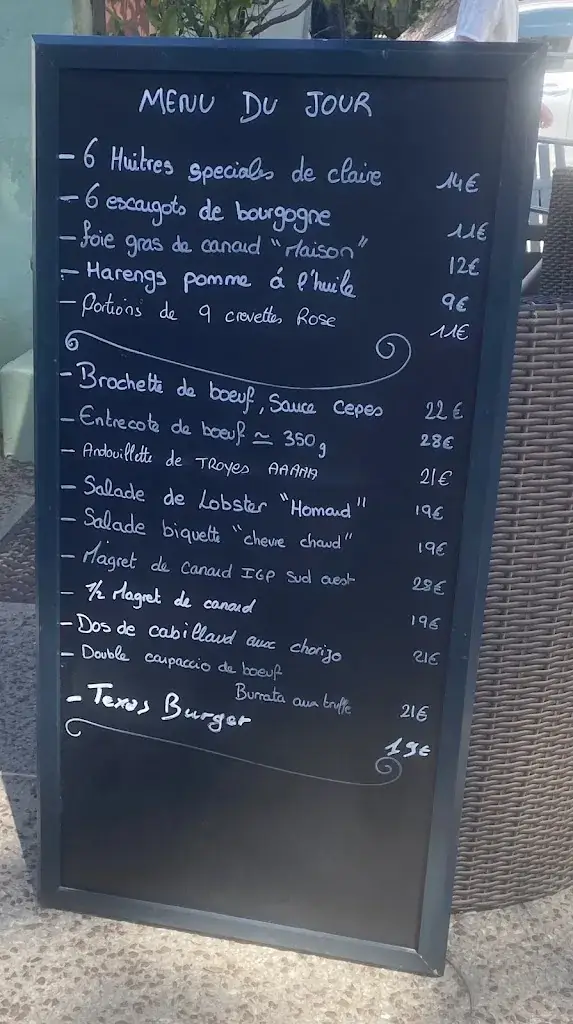 MENU DU JOUR
- 6 Huitres speciales de claire 14€
- 6 escargots de bourgogne 11€
- foie gras de canard "Maison" 12€
- Harengs pomme á l'huile 9€
- Portions de 9 crevettes Rose 11€
- Brochette de boeuf, Sauce Cepes 22€
- Entrecote de boeuf ≃ 350g 28€
- Andouillette de TROYES AAAAA 21€
- Salade de Lobster "Homard" 19€
- Salade biquette "chevre chaud" 19€
- Magret de canard IGP Sud ouest 28€
- 1/2 Magret de canard 19€
- Dos de cabillaud aux chorizo 21€
- Double carpaccio de boeuf
Burrata aux truffe 21€
- Texas Burger 19€